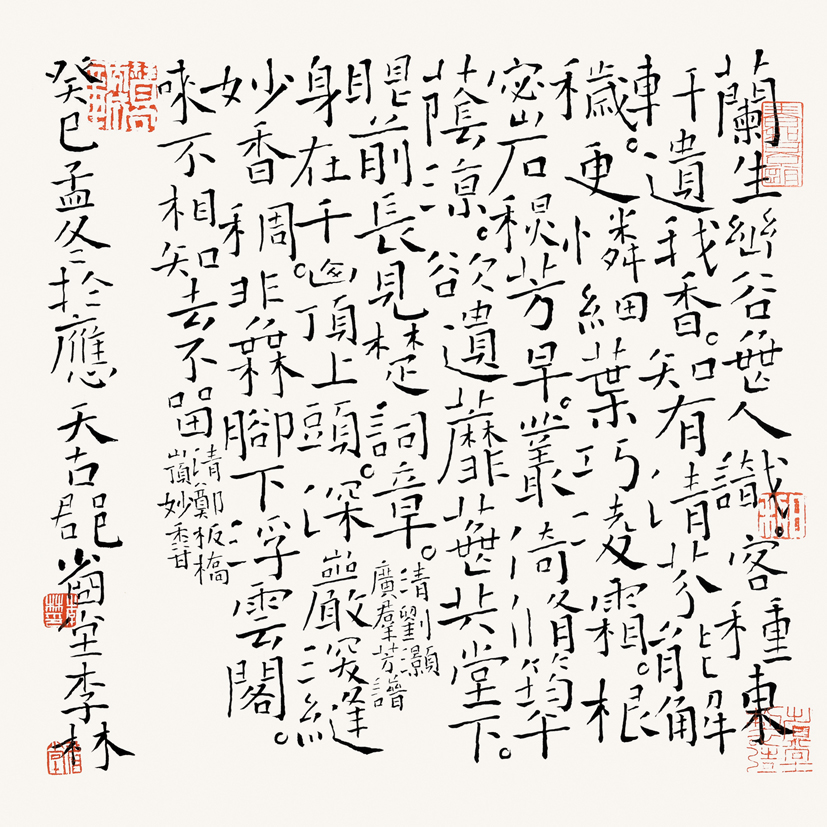 蘭生幽谷無人識。客種東
軒遺我香。知有清芬能解
穢。更憐細葉巧凌霜。根
密石秋芳早。叢倚脩筠午
蔭涼。欲遺蘼蕪共堂下。
眼前長見楚詞章。
清劉灝
廣羣芳譜
身在千山頂上頭。深巖突縫
妙香稠。非無腳下浮雲閣。
味不相知去不留
清鄭板橋
妙香
癸巳孟冬於應天古郡堂李林